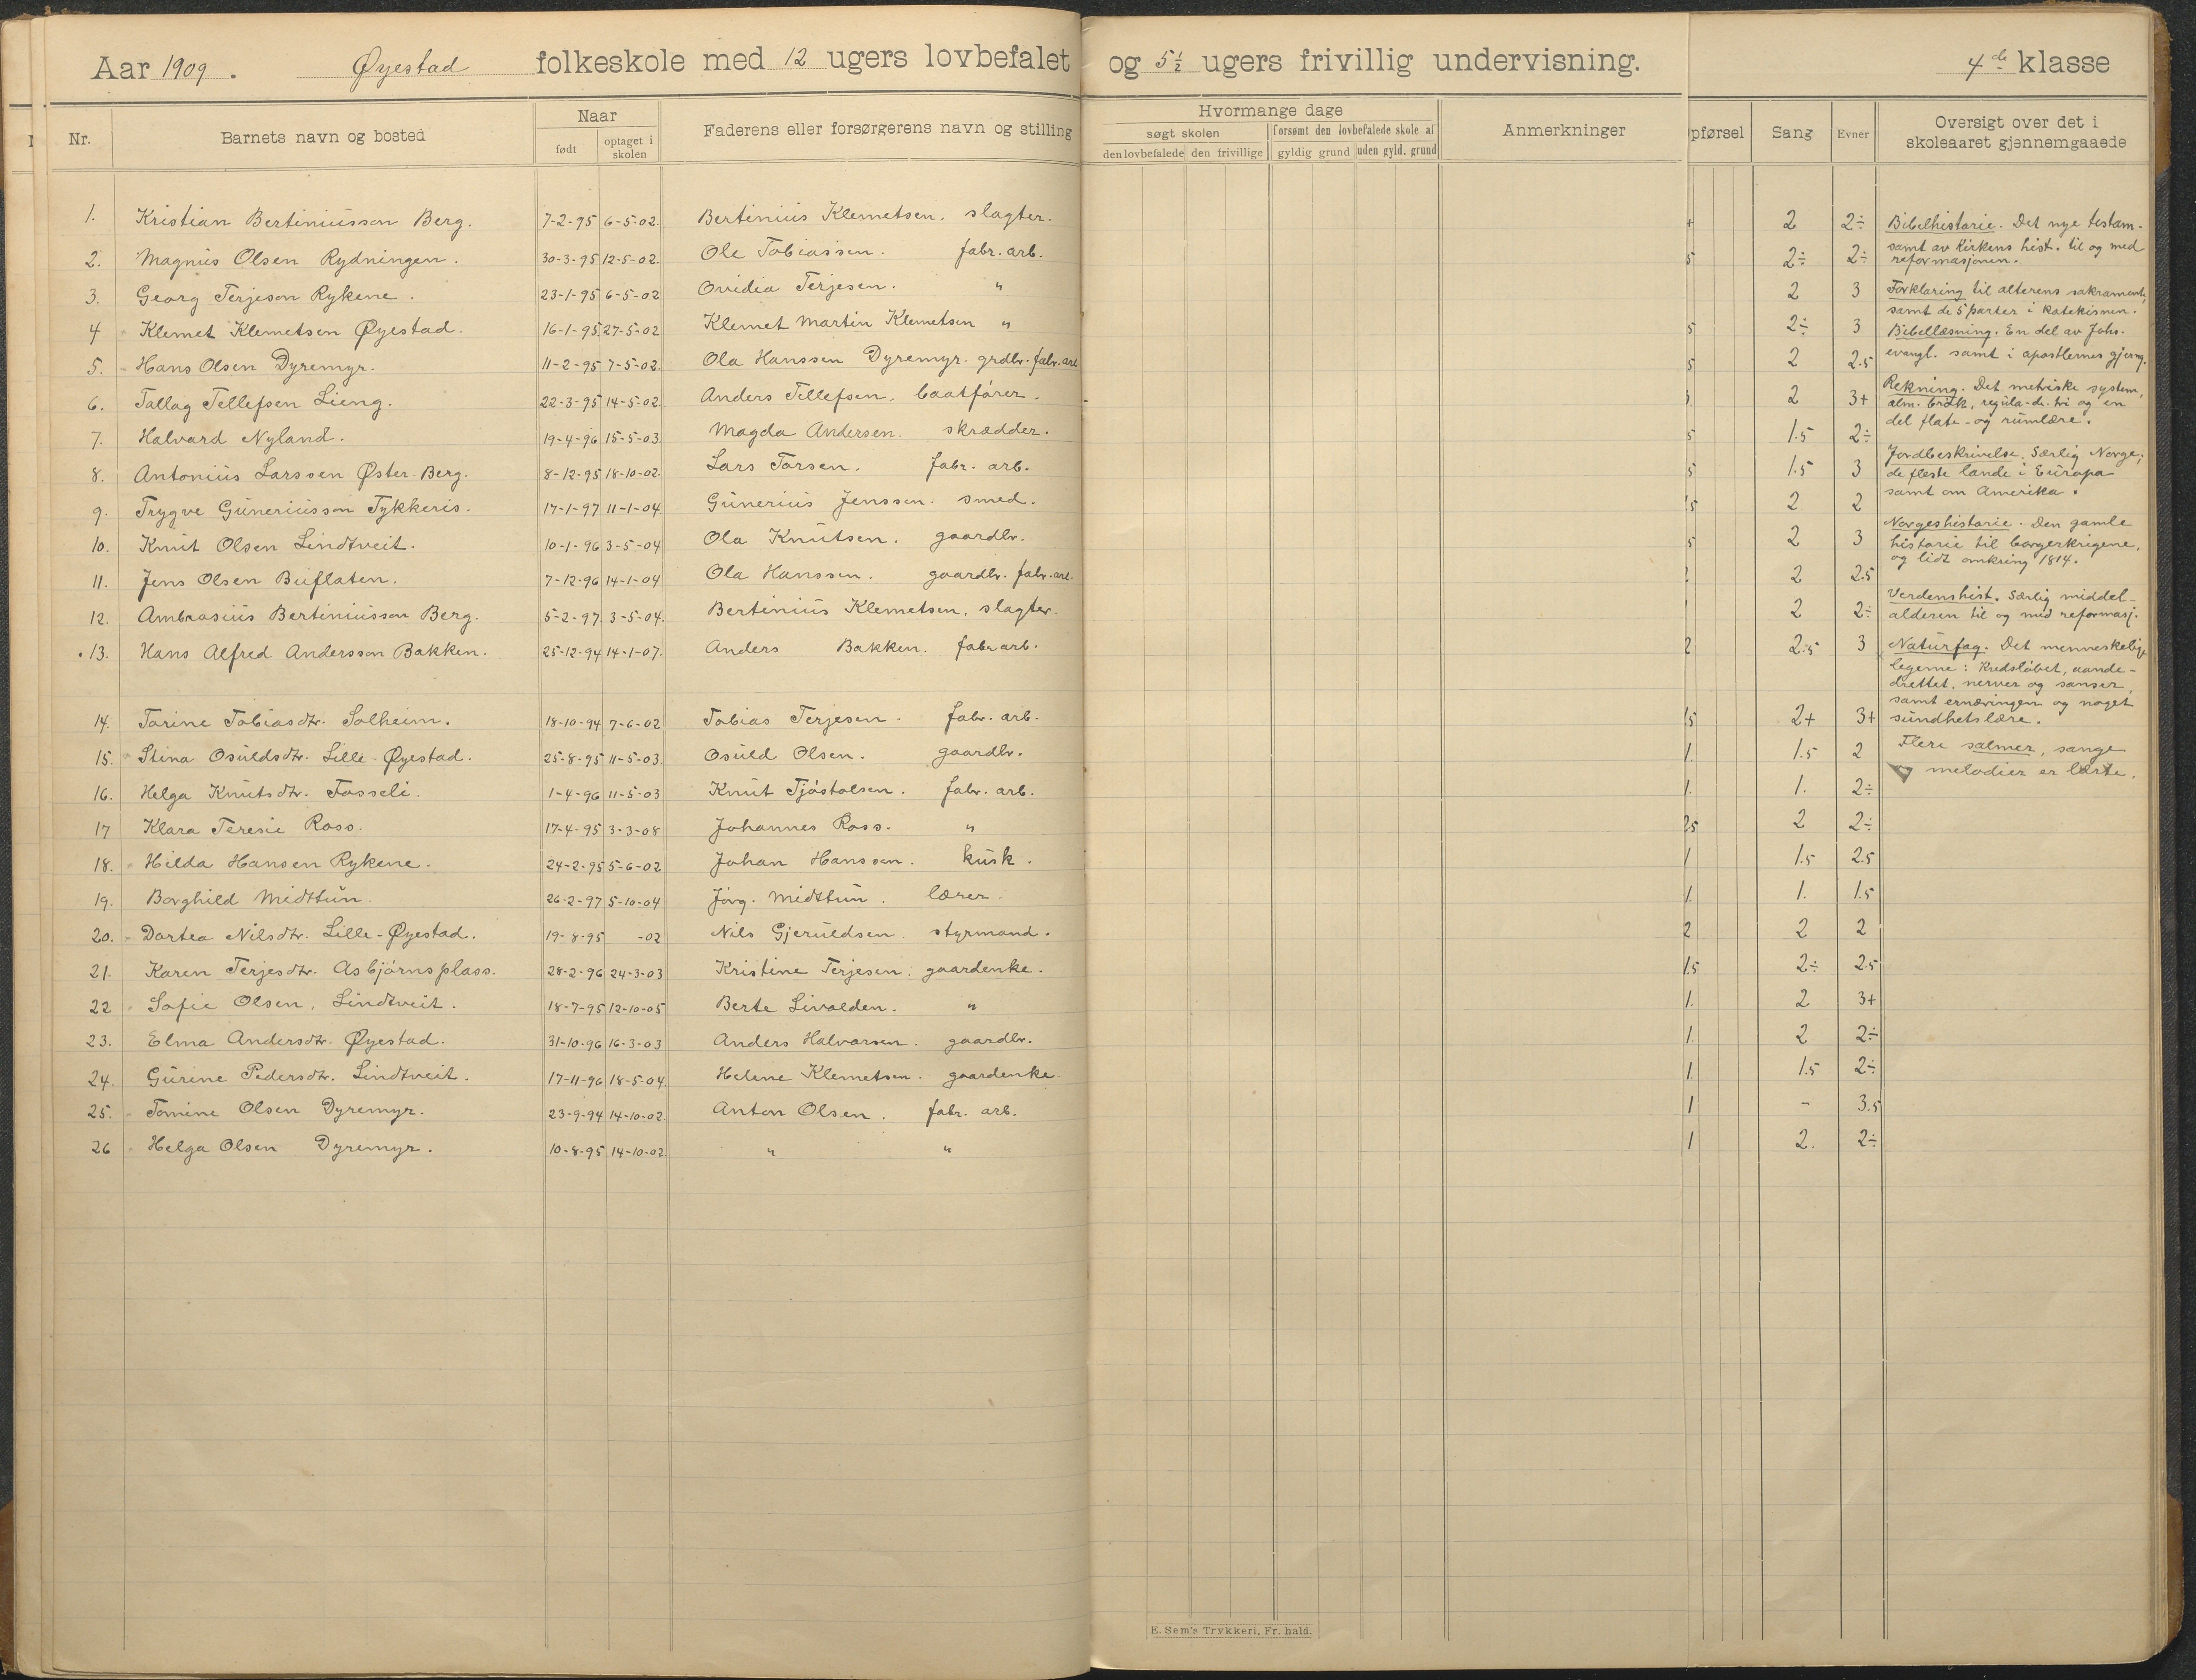 Aar 1909. Øyestad folkeskole med 12 ugers lovbefalet og 5½ ugers frivillig undervisning. 4de klasse
Nr. Barnets navn og bosted Naar født optaget i skolen Faderens eller forsørgerens navn og stilling
Hvormange dage
søgt skolen forsømt den lovbefalede skole af
den lovbefalede den frivillige gyldig grund uden gyld. grund
Anmerkninger
pførsel Sang Evner Oversigt over det i skoleaaret gjennemgaaede
1. Kristian Bertiniusson Berg. 7-2-95 6-5-02. Bertinius Klemetsen. slagter. 2 2÷
2. Magnus Olsen Rydningen. 30-3-95 12-5-02. Ole Tobiassen. fabr. arb. 5 2÷ 2÷
3. Georg Terjeson Rykene. 23-1-95 6-5-02 Ovidia Terjesen. " 2 3
4 Klemet Klemetsen Øyestad. 16-1-95 27-5-02 Klemet Martin Klemetsen " 5 2÷ 3
5. Hans Olsen Dyremyr. 11-2-95 7-5-02. Ola Hanssen Dyremyr. grdbr. fabr. arb 5 2 2.5
6. Tallag Tellefsen Lieng. 22-3-95 14-5-02. Anders Tellefsen. baatfører. 2 3+
7. Halvard Nyland. 19-4-96 15-5-03. Magda Andersen. skrædder. 5 1.5 2÷
8. Antonius Larssen Øster-Berg. 8-12-95 18-10-02. Lars Torsen. fabr. arb. 5 1.5 3
9. Trygve Guneriusson Tykkeris. 17-1-97 11-1-04 Gunerius Jenssen. smed. 1.5 2 2
10. Knut Olsen Lindtveit. 10-1-96 3-5-04 Ola Knutsen. gaardbr. 5 2 3
11. Jens Olsen Buflaten. 7-12-96 14-1-04 Ola Hanssen. gaardbr. fabr. arb. 2 2.5
12. Ambrosius Bertiniusson Berg. 5-2-97. 3-5-04. Bertinius Klemetsen. slagter. 2 2÷
13. Hans Alfred Andersson Bakken. 25-12-94 14-1-07. Anders Bakken. fabr arb. 2 2.5 3
14. Torine Tobiasdtr. Solheim. 18-10-94 7-6-02 Tobias Terjesen. fabr. arb. 1.5 2+ 3+
15. Stina Osuldsdtr. Lille-Øyestad. 25-8-95 11-5-03. Osuld Olsen. gaardbr. 1. 1.5 2
16. Helga Knutsdtr. Fosseli. 1-4-96 11-5-03 Knut Tjøstolsen. fabr. arb. 1. 1. 2÷
17 Klara Teresie Ross. 17-4-95 3-3-08 Johannes Ross. " 2.5 2 2÷
18. Hilda Hansen Rykene. 24-2-95 5-6-02 Johan Hanssen. kusk. 1 1.5 2.5
19. Borghild Midttun. 26-2-97 5-10-04 Jørg. Midttun. lærer. 1. 1. 1.5
20. Dortea Nilsdtr. Lille-Øyestad. 19-8-95 -02 Nils Gjeruldsen. styrmand. 2 2 2
21. Karen Terjesdtr. Asbjørnsplass. 28-2-96 24-3-03 Kristine Terjesen. gaardenke. 1.5 2÷ 2.5
22 Sofie Olsen, Lindtveit. 18-7-95 12-10-05 Berte Livolden. " 1. 2 3+
23. Elma Andersdtr. Øyestad. 31-10-96 16-3-03 Anders Halvorsen. gaardbr. 1. 2 2÷
24. Gurine Pedersdtr. Lindtveit. 17-11-96 18-5-04. Helene Klemetsen. gaardenke. 1. 1.5 2÷
25. Tomine Olsen Dyremyr. 23-9-94 14-10-02. Anton Olsen. fabr. arb. 1 - 3.5
26 Helga Olsen Dyremyr. 10-8-95 14-10-02. " " 1 2. 2÷
Bibelhistorie. Det nye testam.
samt av Kirkens hist. til og med
reformasjonen.
Forklaring til alterens sakrament,
samt de 5 parter i katekismen.
Bibellæsning. En del av Johs.
evangl. samt i apostlernes gjerng.
Rekning. Det metriske system,
alm. brøk, regula-de-tri og en
del flate- og rumlære.
Jordbeskrivelse. Særlig Norge;
de fleste lande i Europa
samt om Amerika.
Norgeshistorie. Den gamle
historie til borgerkrigene,
og lidt omkring 1814.
Verdenshist. Særlig middel-
alderen til og med reformasj.
Naturfag. Det menneskelige
legeme: Kredsløbet, aande-
drettet, nerver og sanser,
samt ernæringen og noget
sundhetslære.
Flere salmer, sange
og melodier er lærte.
E. Sem's Trykkeri, Fr. hald.